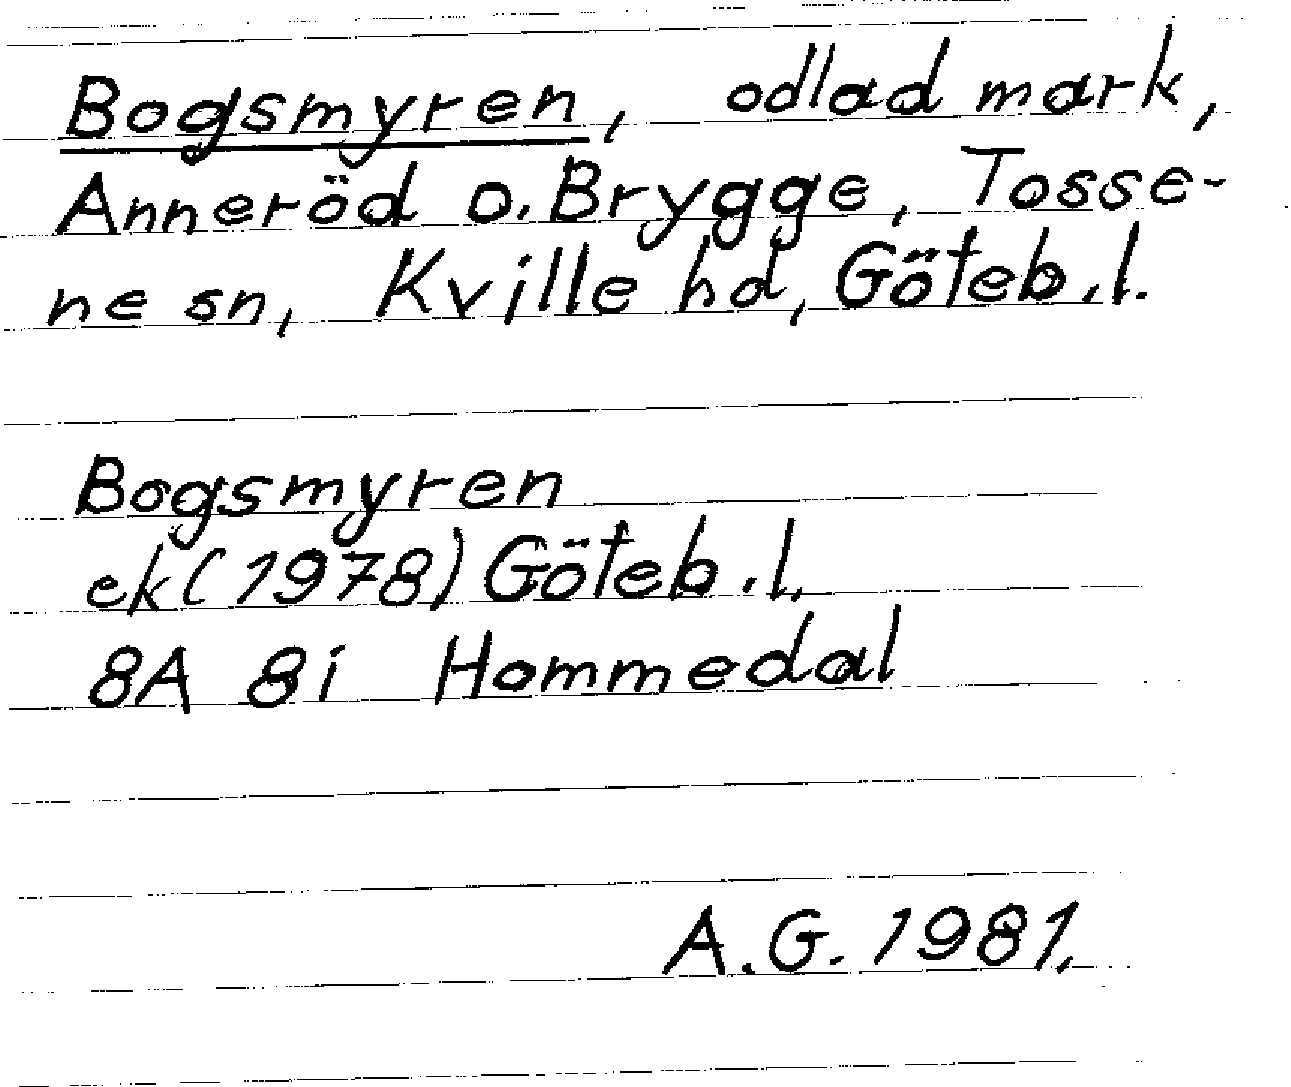 Bogsmyren, odlad mark,
Anneröd o. Brygge, Tosse-
ne sn, Kville hd, Göteb.l.
Bogsmyren
ek(1978) Göteb.l.
8A 8i Hommedal
A.G. 1981.